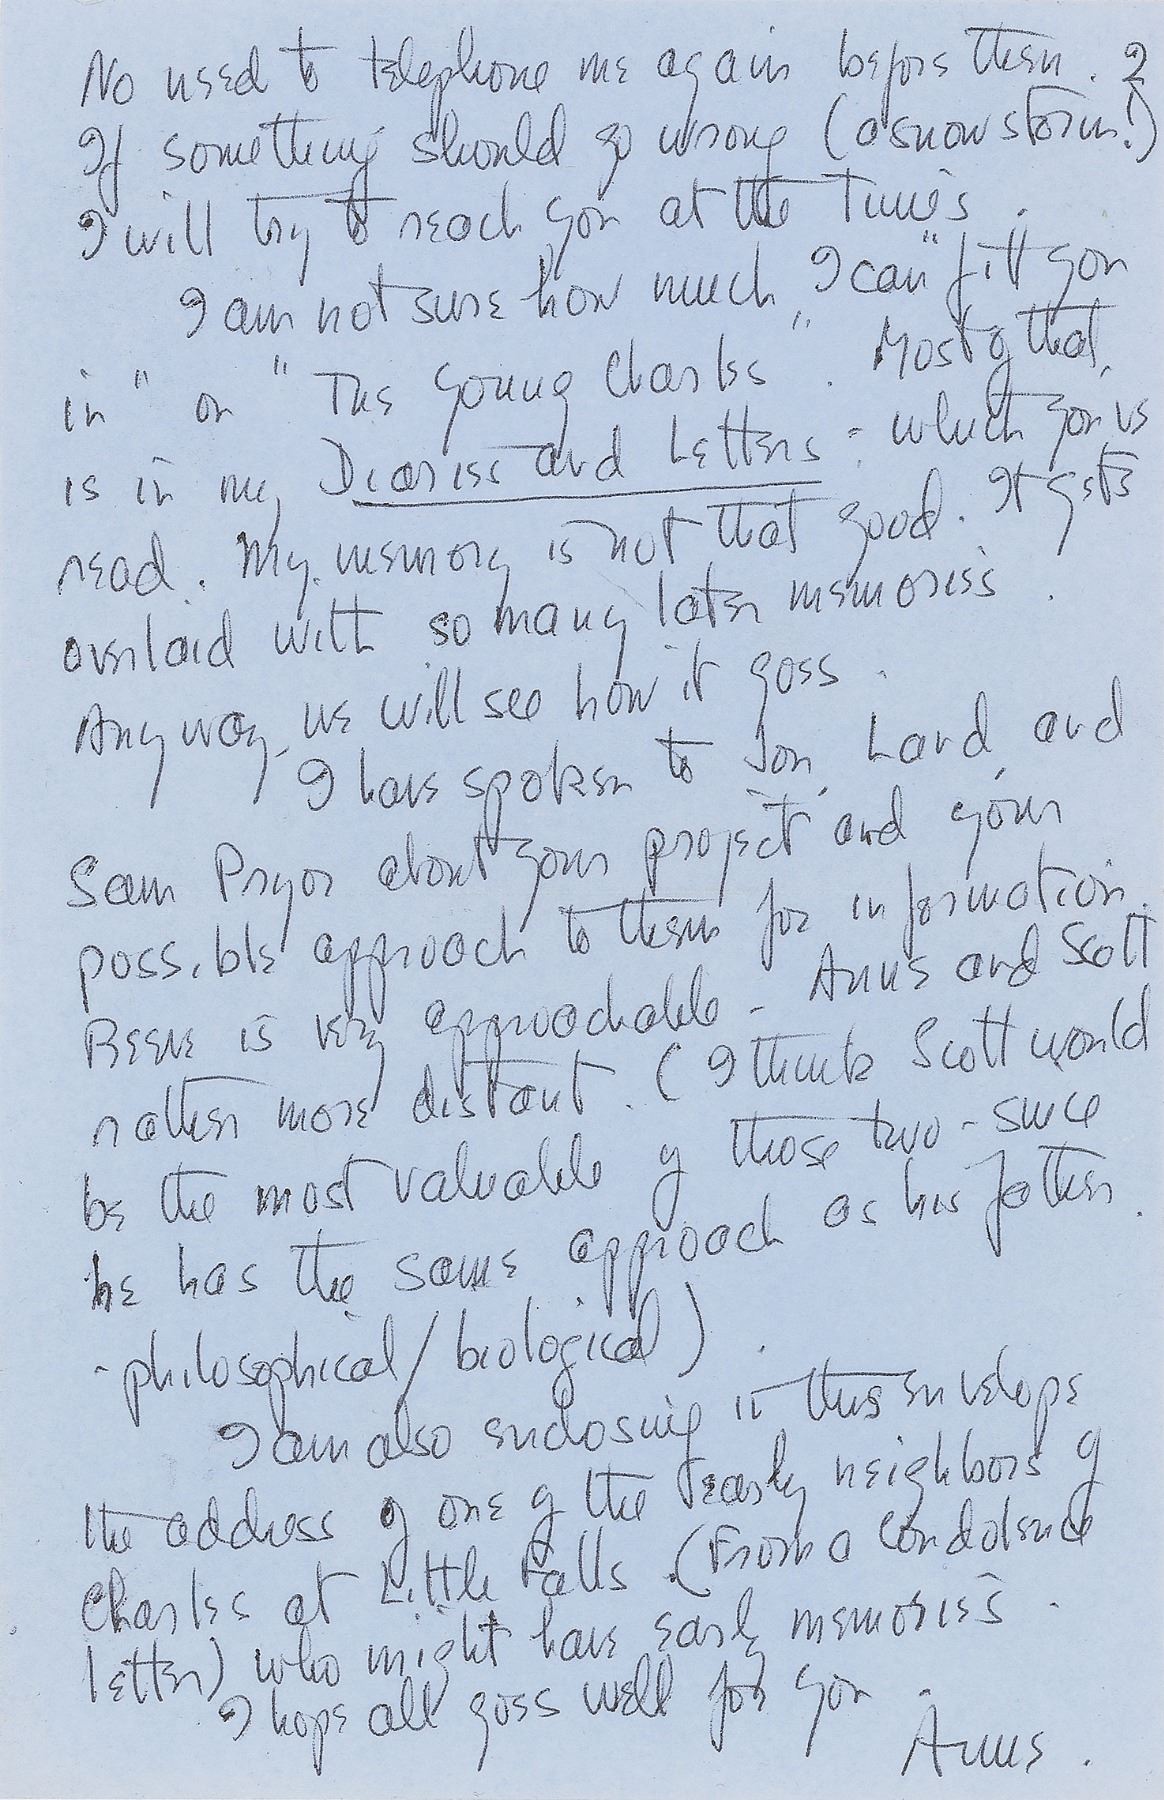 No need to telephone me again before then. 2
If something should go wrong (a snow storm!)
I will try to reach you at the Times.
I am not sure how much I can "fill you
in" on "The Young Charles". Most of that,
is in my Diaries and Letters: which you've
read. My memory is not that good. It gets
overlaid with so many later memories.
Anyway, we will see how it goes.
I have spoken to Jon, Land, and
Sam Pryor about your project and your
possible approach to them for information.
Reeve is very approachable - Anne and Scott
rather more distant. (I think Scott would
be the most valuable of those two - since
he has the same approach as his father.
- philosophical/biological).
I am also enclosing in this envelope
the address of one of the early neighbors of
Charles at Little Falls. (From a condolence
letter) who might have early memories.
I hope all goes well for you.
Anne.